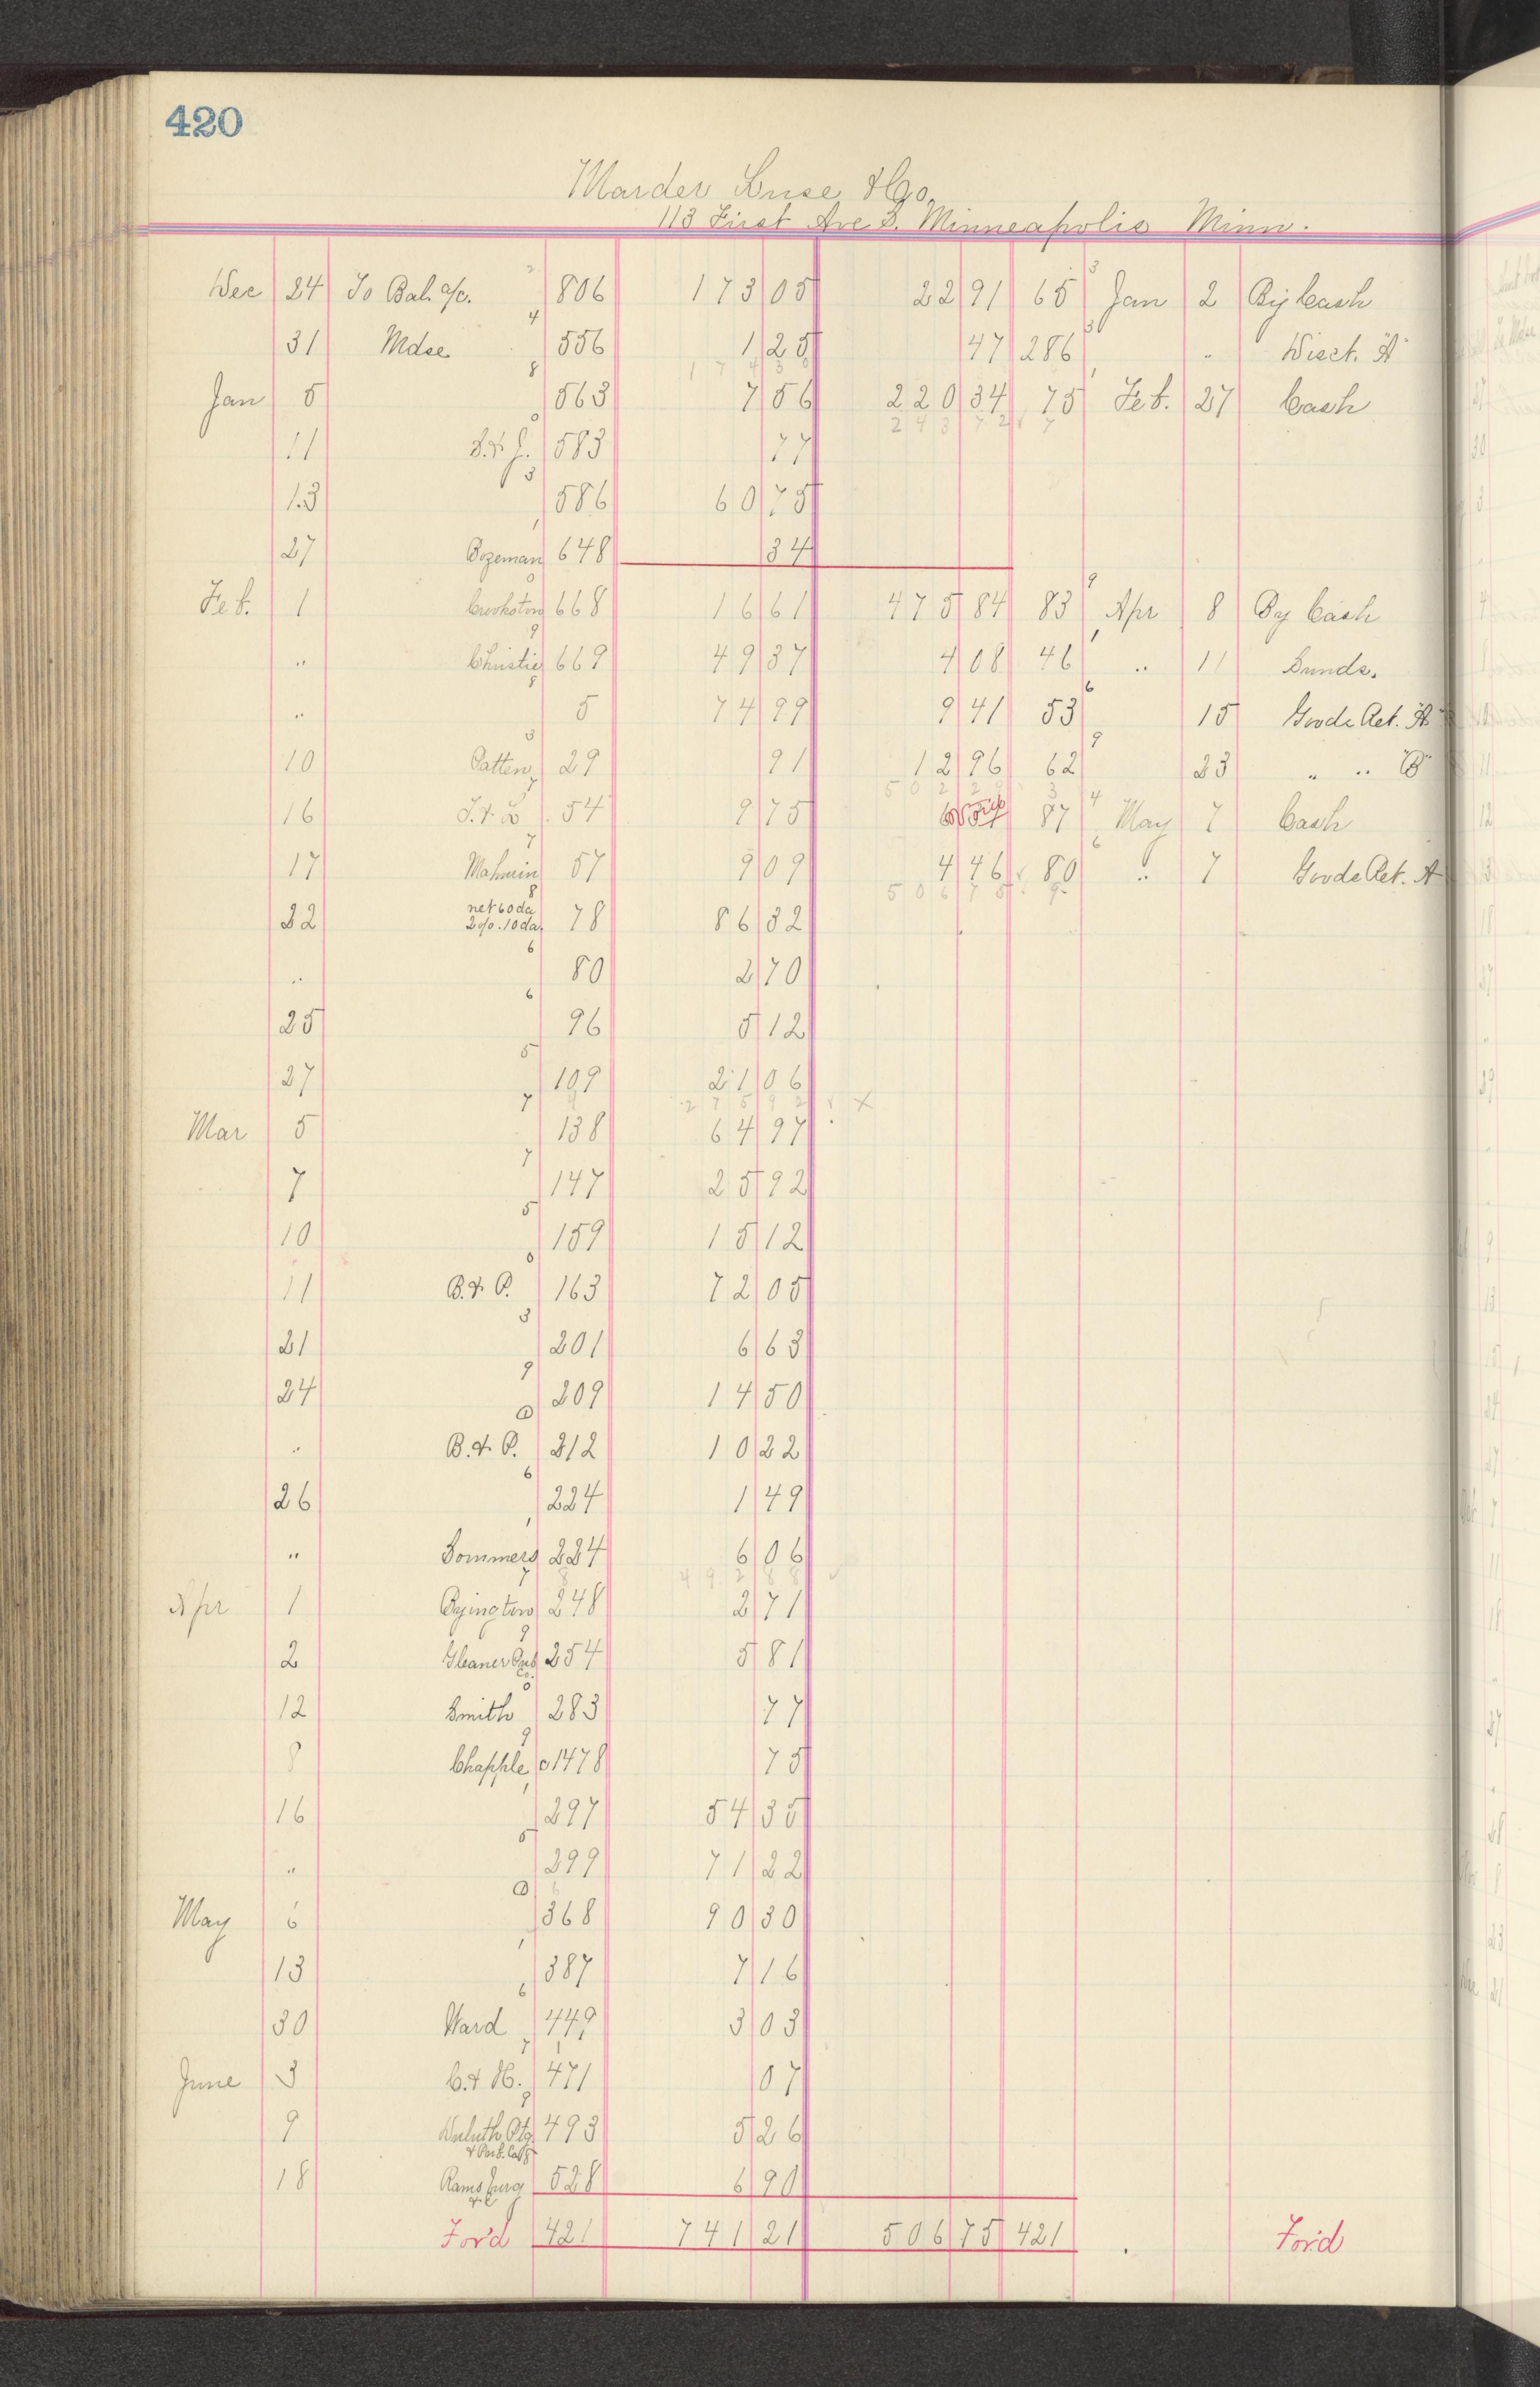 420
Marder Luse & Co.
113 First Ave S. Minneapolis Minn.
Dec 24 To Bal. a/c. 806 173 05 22 91 65 Jan 2 By Cash
31 Mdse 556 1 25 47 286 " Disct. "A"
1 7 4 3 0
Jan 5 563 7 56 220 34 75 Feb. 27 Cash
2 4 3 7 2 7
11 S. & J. 583 77
13 586 60 75
27 Bozeman 648 34
Feb. 1 Crookston 668 16 61 475 84 83 Apr 8 By Cash
" Christie 669 49 37 4 08 46 " 11 Sunds.
" 5 74 99 9 41 53 15 Goods Ret. "A"
10 Patten 29 91 12 96 62 23 " " "B"
5 0 2 2 9 3
16 J. & L 54 9 75 87 May 7 Cash
17 57 9 09 4 46 80 " 7 Goods Ret. A
5 0 6 7 5 9
22 net 60 da 2% 10 da. 78 86 32
" 80 2 70
25 96 5 12
27 109 21 06
2 7 5 9 2 x
Mar 5 138 64 97
7 147 25 92
10 159 15 12
11 B. & P. 163 72 05
21 201 6 63
24 209 14 50
" B. & P. 212 10 22
26 224 1 49
" Sommers 224 6 06
4 9 2 8 8
Apr 1 Byington 248 2 71
2 Gleaner Pub Co. 254 5 81
12 Smith 283 77
8 Chapple c1478 75
16 297 54 35
" 299 71 22
May 6 368 90 30
13 387 7 16
30 Ward 449 3 03
June 3 C. & H. 471 07
9 Duluth Ptg. & Pub. Co. 493 5 26
18 Ramsburg & C 528 6 90
For'd 421 741 21 506 75 421 For'd